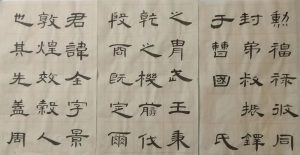 君諱全字景
敦煌效穀人
也其先蓋周
之胄武王秉
乾之機翦伐
殷商既定爾
勳福祿攸同
封弟叔振鐸
于曹國氏